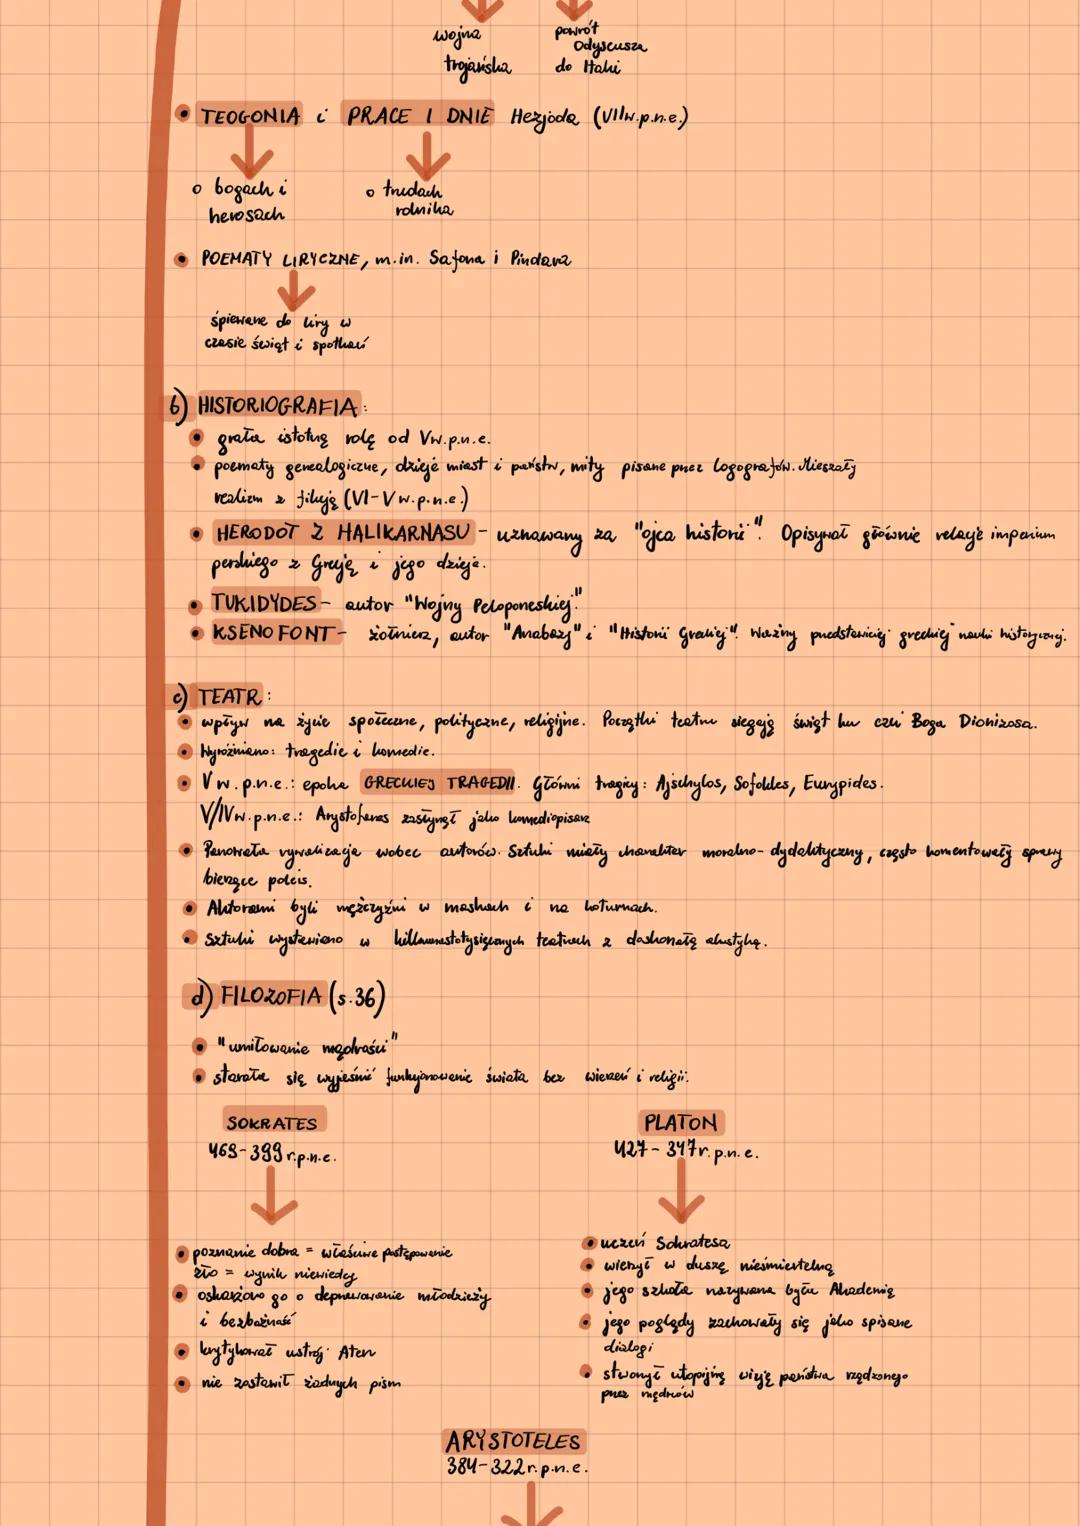 wojna
trojańska
powrót
Odyseusza
do Itaki
TEOGONIA i PRACE I DNIE Hezjoda (VIIw.p.n.e.)
o bogach i
herosach
o trudach
rolnika
POEMATY LIRYCZNE, m.in. Safona i Pindara
śpiewane do liry w
czasie świąt i spotkań
b) HISTORIOGRAFIA:
grała istotną rolę od Vw.p.n.e.
poematy genealogiczne, dzieje miast i państw, mity pisane przez logografów. Mieszały
realizm z fikcją (VI-Vw.p.n.e.)
HERODOT Z HALIKARNASU - uznawany za "ojca historii". Opisywał głównie relacje imperium
perskiego z Grecją i jego dzieje.
TUKIDYDES - autor "Wojny Peloponeskiej."
KSENOFONT - żołnierz, autor "Anabazy" i "Historii Greckiej". Ważny przedstawiciej greckiej nauki historycznej.
c) TEATR:
wpływ na życie społeczne, polityczne, religijne. Początki teatru sięgają świąt ku czci Boga Dionizosa.
Wyróżniano: tragedie i komedie.
Vw.p.n.e.: epoka GRECKIEJ TRAGEDII. Główni tragicy: Ajschylos, Sofokles, Eurypides.
V/IVw.p.n.e.: Arystofanes zasłynął jako komediopisarz
Panowała rywalizacja wobec autorów. Sztuki miały charakter moralno-dydaktyczny, często komentowały sprawy
bieżące poleis.
Aktorami byli mężczyźni w maskach i na koturnach.
Sztuki wystawiano w kilkunastotysięcznych teatrach z doskonałą akustyką.
d) FILOZOFIA (s.36)
"umiłowanie mądrości"
starała się wyjaśnić funkcjonowanie świata bez wierzeń i religii.
SOKRATES
469-399 r.p.n.e.
poznanie dobra = właściwe postępowanie
zło = wynik niewiedzy
oskarżono go o deprawowanie młodzieży
i bezbożność
krytykował ustrój Aten
nie zostawił żadnych pism
PLATON
427-347r.p.n.e.
uczeń Sokratesa
wierzył w duszę nieśmiertelną
jego szkoła nazywana była Akademią
jego poglądy zachowały się jako spisane
dialogi
stworzył utopijną wizję państwa rządzonego
przez mędrców
ARYSTOTELES
384-322r.p.n.e.